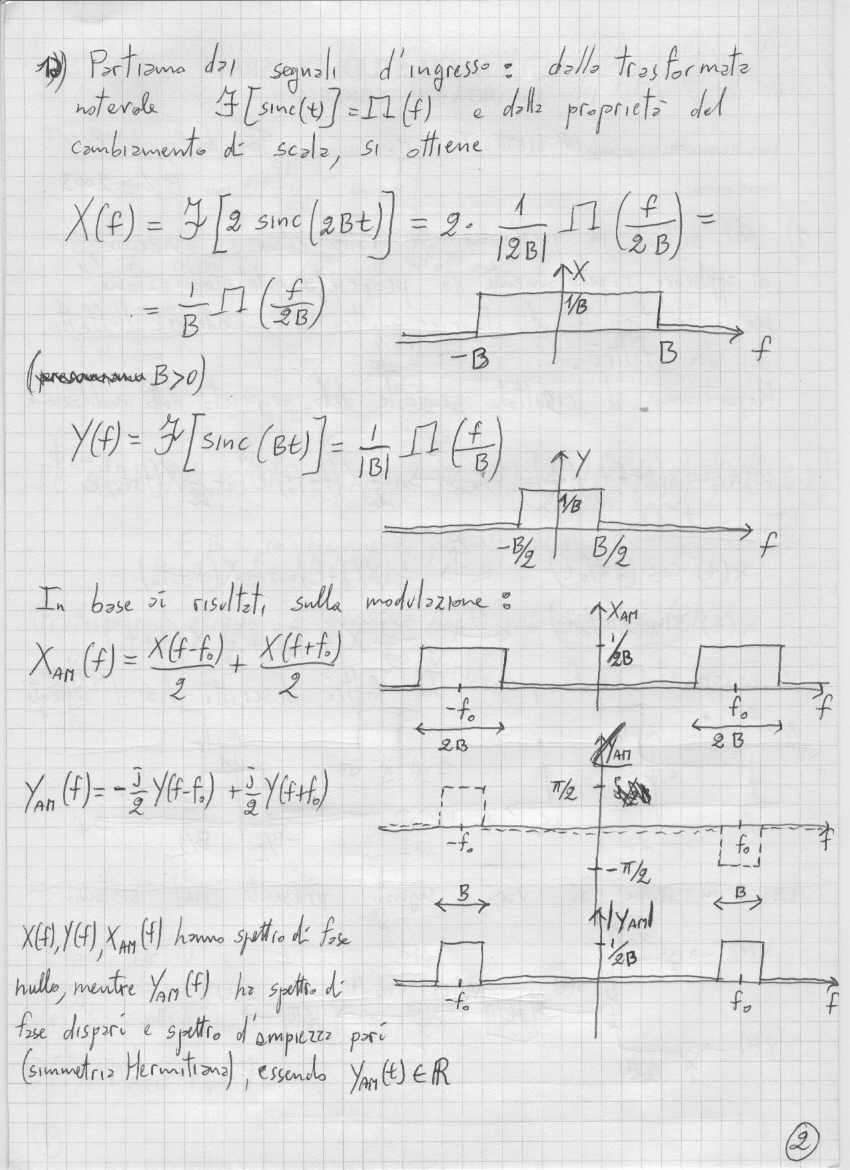 1a) Partiamo dai segnali d'ingresso: dalla trasformata
notevole ℱ[sinc(t)] = Π(f) e dalla proprietà del
cambiamento di scala, si ottiene
X(f) = ℱ[2 sinc(2Bt)] = 2· 1/|2B| Π(f/2B) =
= 1/B Π(f/2B)
X
1/B
-B B f
( B>0)
Y(f) = ℱ[sinc(Bt)] = 1/|B| Π(f/B)
Y
1/B
-B/2 B/2 f
In base ai risultati sulla modulazione:
X_AM(f) = X(f-f₀)/2 + X(f+f₀)/2
X_AM
1/2B
-f₀ f₀ f
2B 2B
Y_AM(f) = -j/2 Y(f-f₀) + j/2 Y(f+f₀)
∠Y_AM
π/2
-f₀ f₀ f
-π/2
B B
|Y_AM|
1/2B
-f₀ f₀ f
X(f), Y(f), X_AM(f) hanno spettro di fase
nullo, mentre Y_AM(f) ha spettro di
fase dispari e spettro d'ampiezza pari
(simmetria Hermitiana), essendo y_AM(t) ∈ ℝ
2